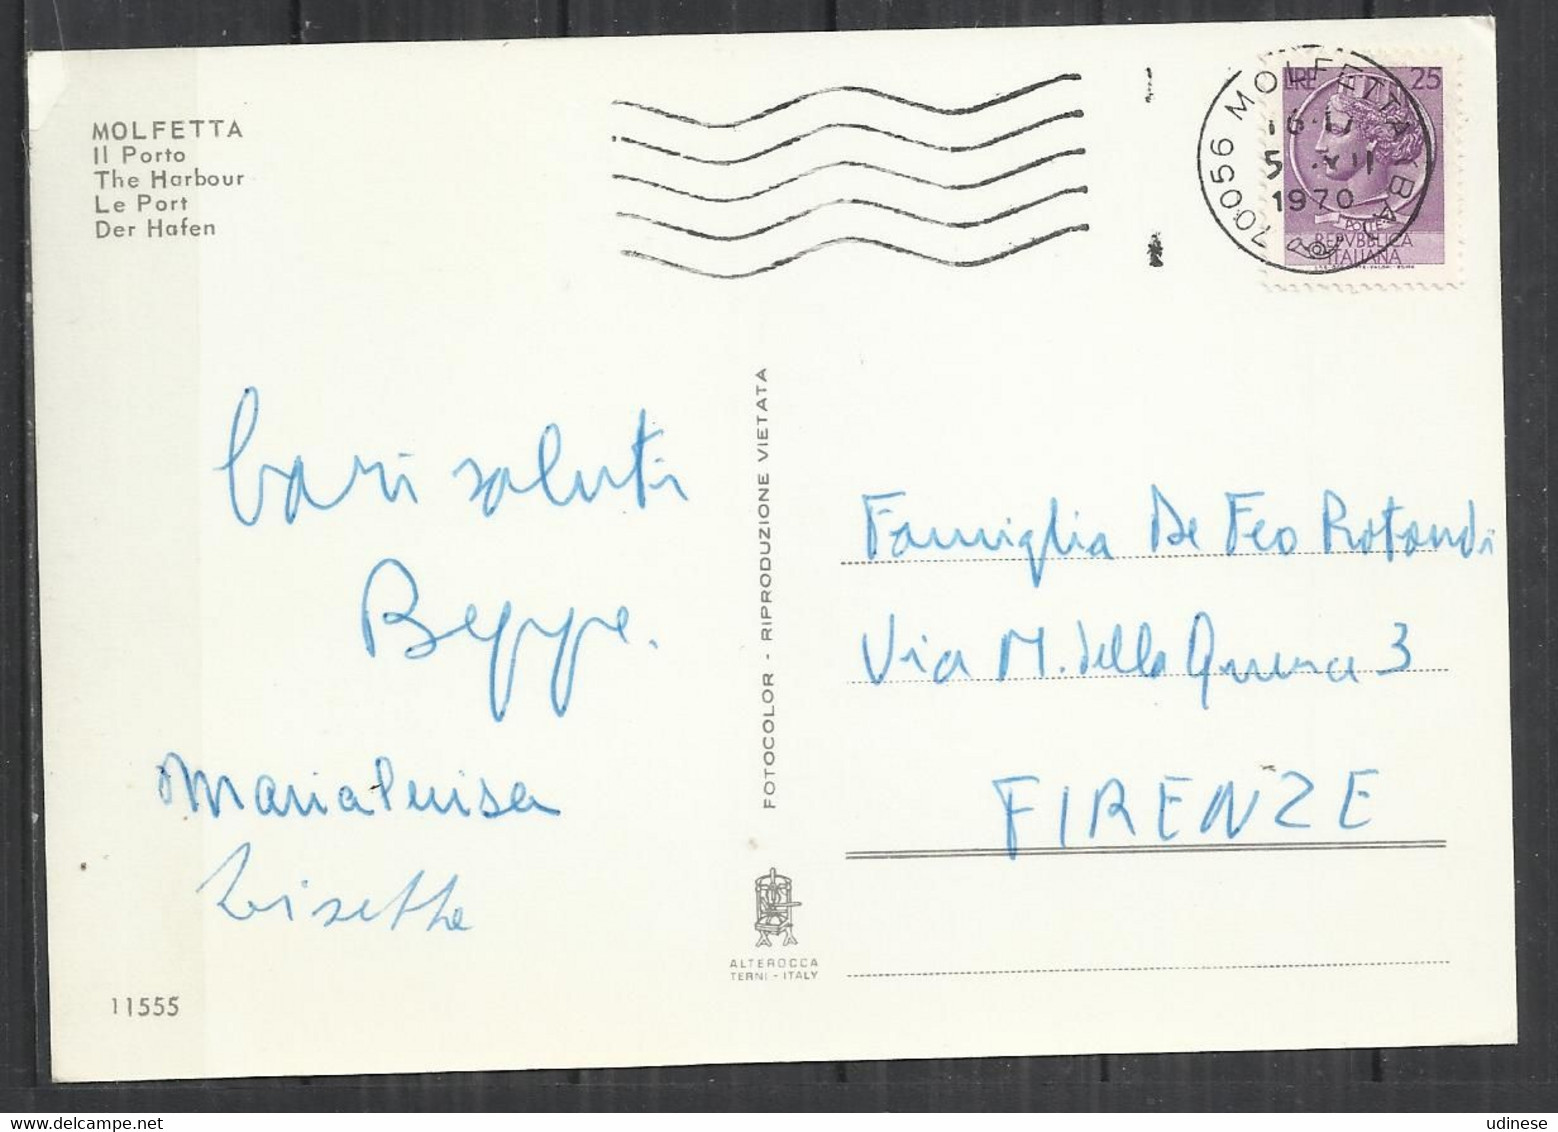 MOLFETTA
Il Porto
The Harbour
Le Port
Der Hafen
70056 MOLFETTA (BA)
16-17
1970
LIRE 25
POSTE
REPVBBLICA
ITALIANA
Cari saluti
Beppe.
Marialuisa
Lisette
11555
FOTOCOLOR - RIPRODUZIONE VIETATA
ALTEROCCA
TERNI - ITALY
Famiglia De Feo Rotondi
Via M. della Quercia 3
FIRENZE
udinese